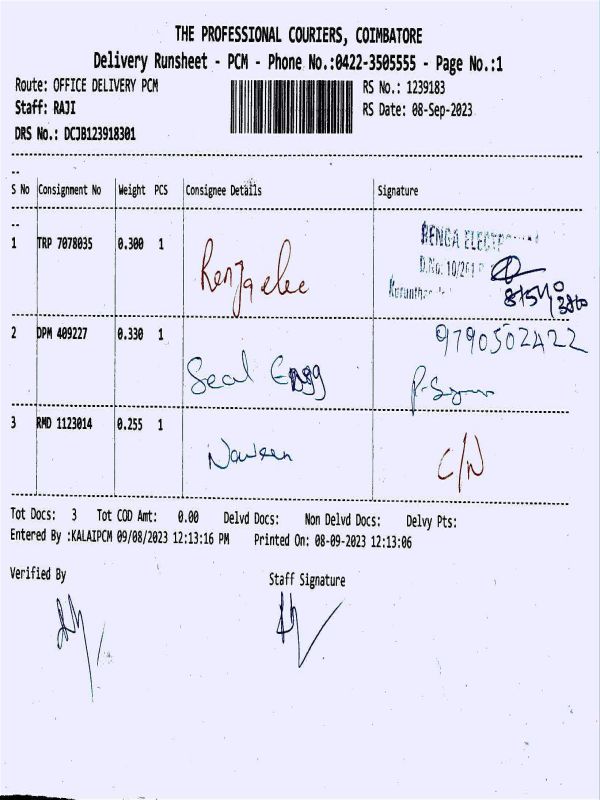 THE PROFESSIONAL COURIERS, COIMBATORE
Delivery Runsheet - PCM - Phone No.:0422-3505555 - Page No.:1
Route: OFFICE DELIVERY PCM RS No.: 1239183
Staff: RAJI RS Date: 08-Sep-2023
DRS No.: DCJB123918301
S No Consignment No Weight PCS Consignee Details Signature
1 TRP 7078035 0.300 1 Renga elec
RENGA
D.No: 10/261
2 DPM 409227 0.330 1 Seal Engg 9790502422
3 RMD 1123014 0.255 1 Naveen C/N
Tot Docs: 3 Tot COD Amt: 0.00 Delvd Docs: Non Delvd Docs: Delvy Pts:
Entered By :KALAIPCM 09/08/2023 12:13:16 PM Printed On: 08-09-2023 12:13:06
Verified By Staff Signature